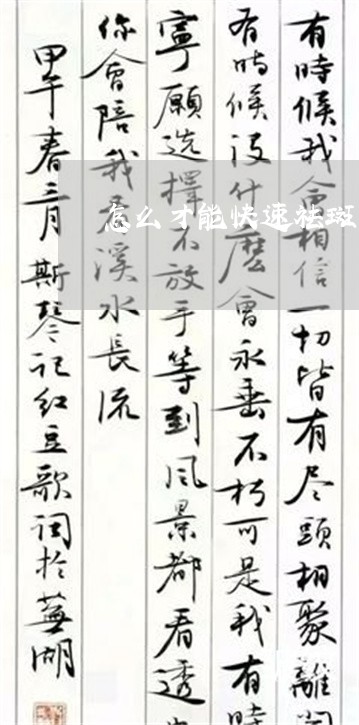 怎么才能快速祛斑
有時候我會相信一切皆有尽頭相聚離開
有時候没什麽會永垂不朽可是我有時
寧願选擇不放手等到风景都看透
你會陪我看溪水長流
甲午春三月斯琴记红豆歌词於蕪湖